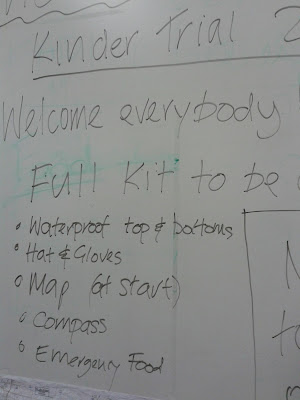 Kinder Trial 2
Welcome everybody
Full Kit to be
• Waterproof top & bottoms
• Hat & Gloves
• Map (at start)
• Compass
• Emergency Food